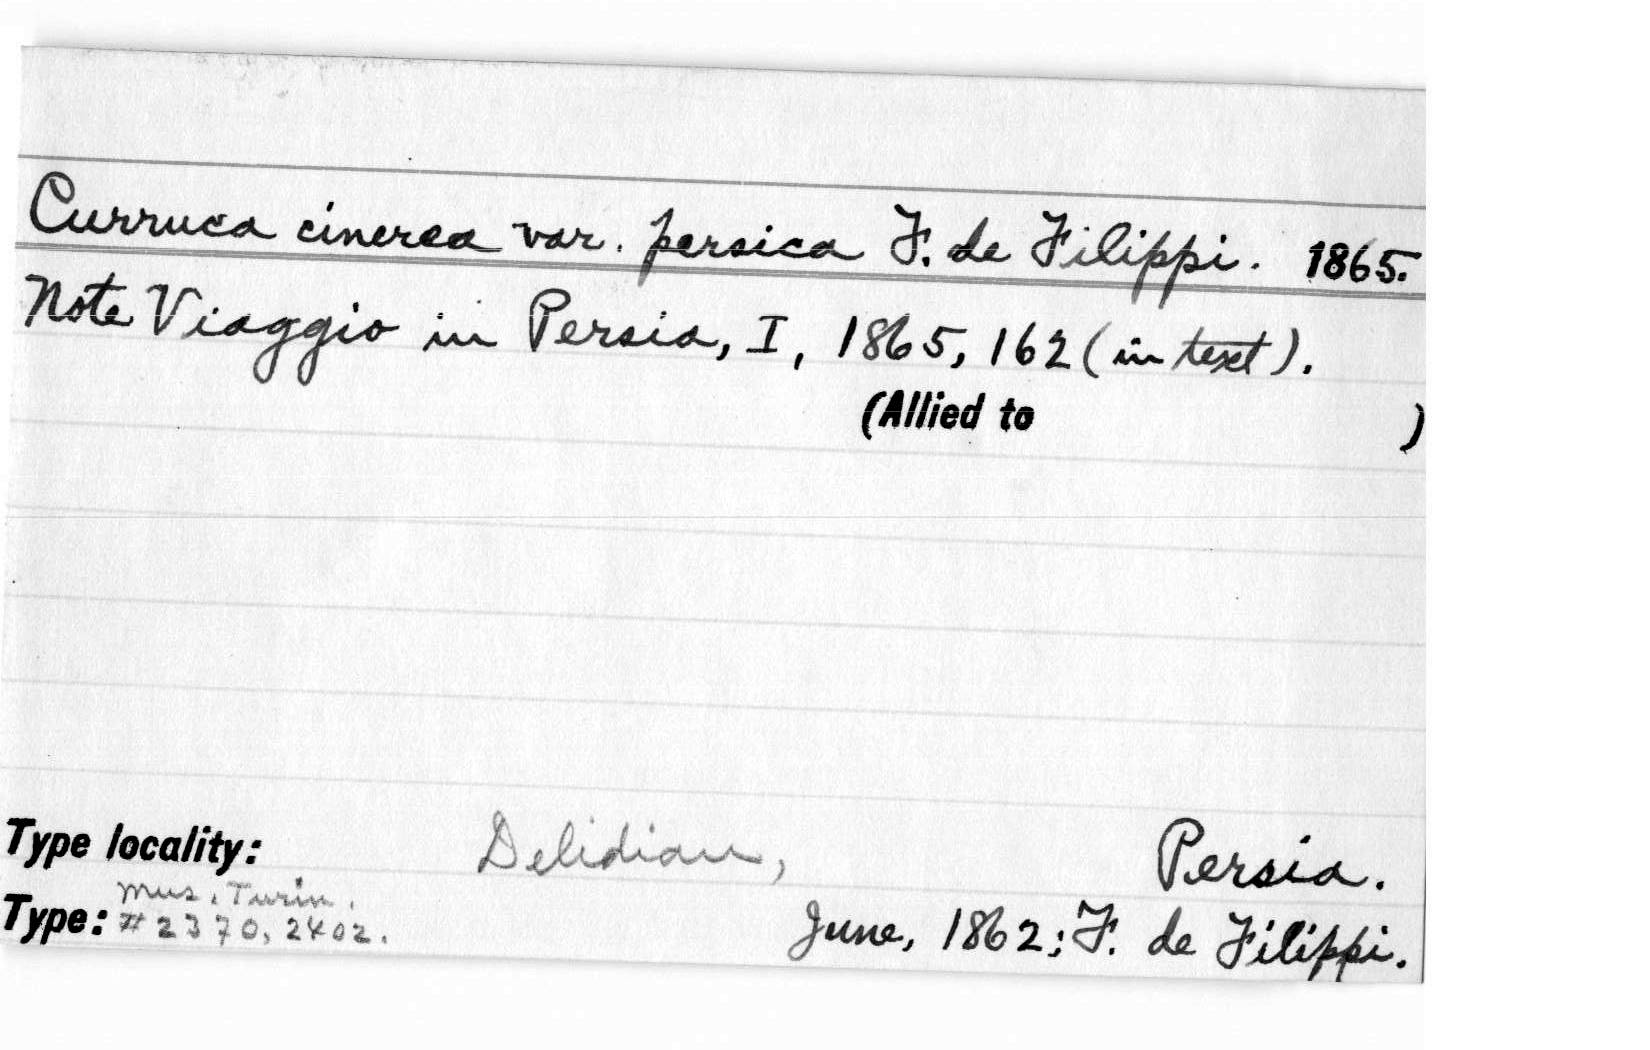 Curruca cinerea var. persica F. de Filippi. 1865.
Note Viaggio in Persia, I, 1865, 162 (in text).
(Allied to )
Type locality: Delidian, Persia.
Mus. Turin.
Type: #2370, 2402. June, 1862; F. de Filippi.